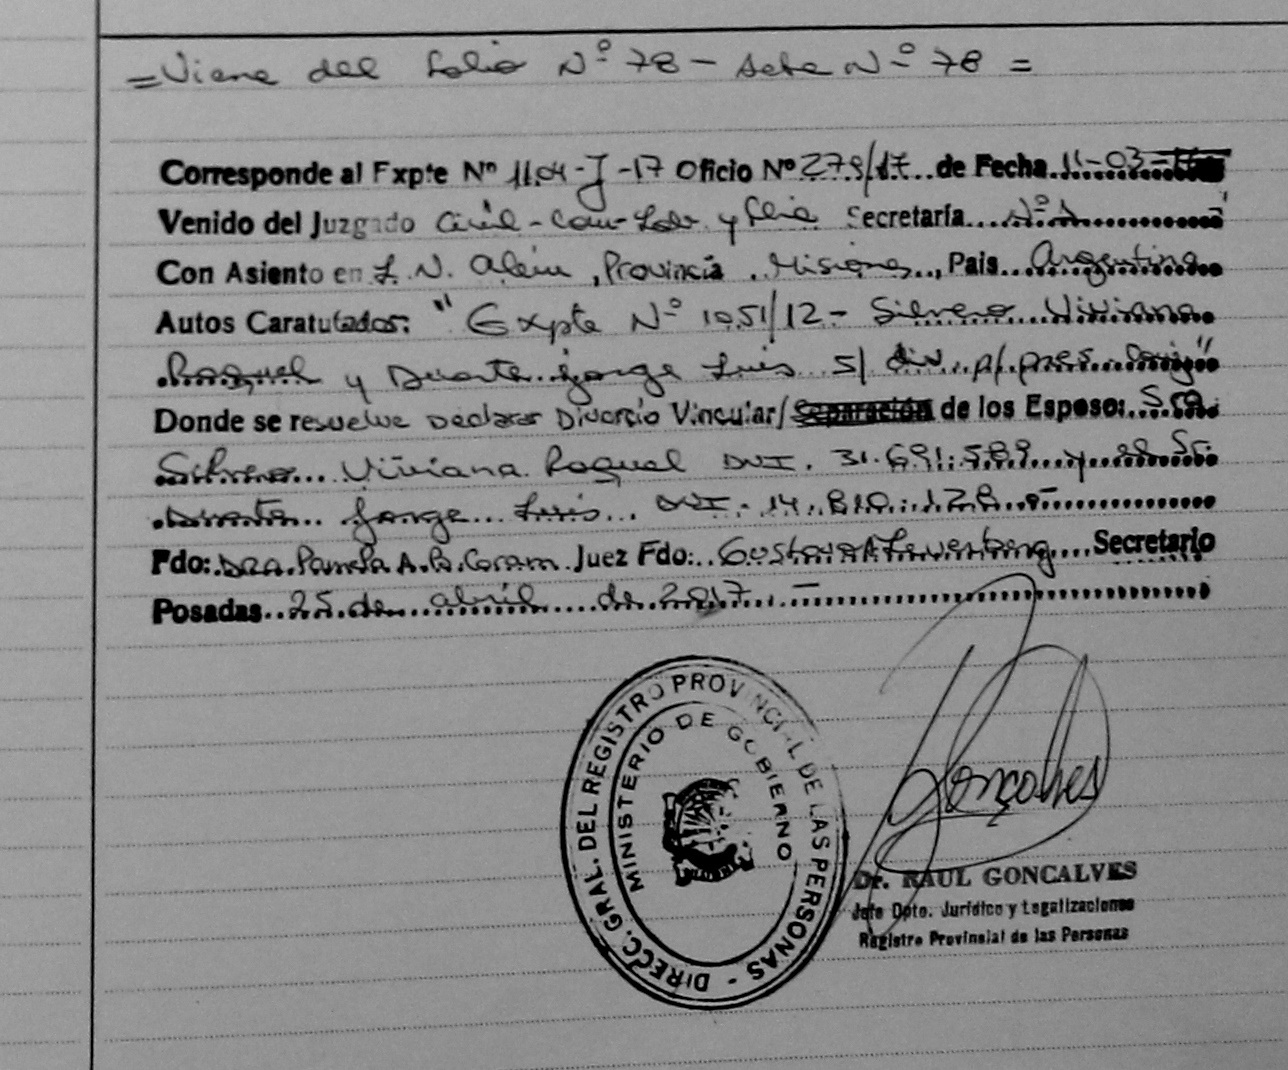 = Viene del folio Nº 78 - Acta Nº 78 =
Corresponde al Expte Nº 1104-J-17 Oficio Nº 279/17 de Fecha 11-03-
Venido del Juzgado Civil-Com-Lab y flia Secretaría Nº 1
Con Asiento en L. N. Além, Provincia Misiones, Pais Argentina
Autos Caratulados: "Expte Nº 1051/12- Silvero Viviana
Raquel y Duarte Jorge Luis S/ div. p/ pres. Conj"
Donde se resuelve Declarar Divorcio Vincular/Separación de los Esposo: Sra.
Silvero Viviana Raquel DNI. 31.691.589 y el Sr.
Duarte Jorge Luis DNI- 14.810.128.-
Fdo: Dra. Pamela A. B. Juez Fdo: Gustavo A. Secretario
Posadas 25 de abril de 2017.-
DIRECC. GRAL. DEL REGISTRO PROVINCIAL DE LAS PERSONAS -
MINISTERIO DE GOBIERNO
Gonçalves
Dr. RAUL GONCALVES
Jefe Dpto. Jurídico y Legalizaciones
Registro Provincial de las Personas